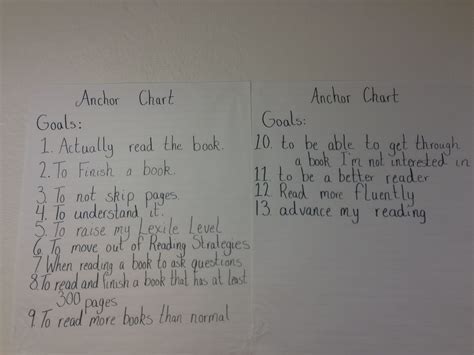 Anchor Chart
Goals:
1. Actually read the book.
2. To Finish a book.
3. To not skip pages.
4. To understand it.
5. To raise my Lexile Level
6. To move out of Reading Strategies
7. When reading a book to ask questions
8. To read and finish a book that has at least
300 pages
9. To read more books than normal
Anchor Chart
Goals:
10. to be able to get through
a book I'm not interested in
11. to be a better reader
12. Read more fluently
13. advance my reading